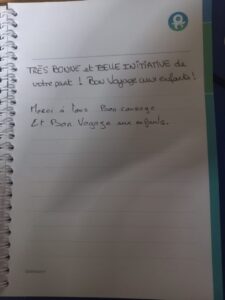 TRÈS BONNE et BELLE INITIATIVE de
votre part ! Bon Voyage aux enfants !
Merci à tous. Bon courage
Et Bon Voyage aux enfants.